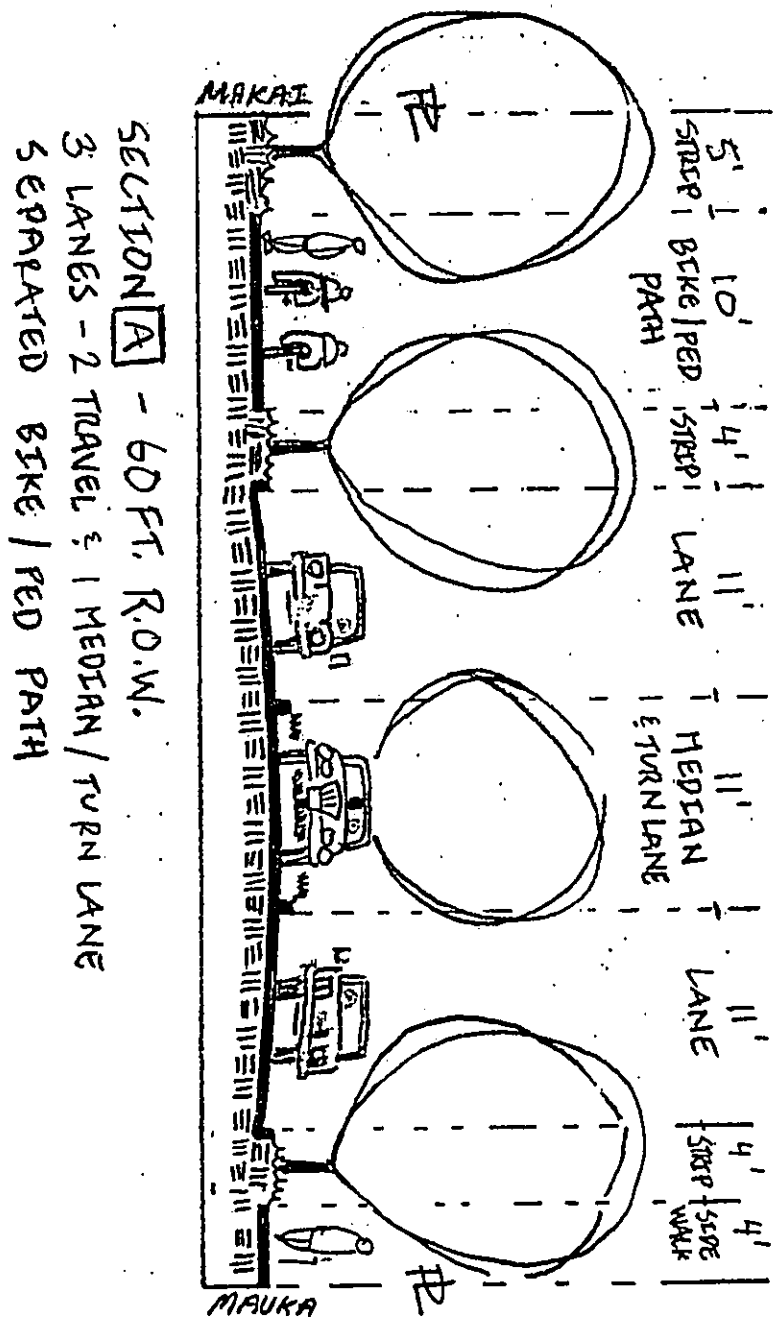 5'
STRIP
10'
BIKE/PED
PATH
4'
STRIP
11'
LANE
11'
MEDIAN
& TURN LANE
11'
LANE
4'
STRIP
4'
SIDE
WALK
PL
PL
MAKAI
MAUKA
SECTION A - 60 FT. R.O.W.
3 LANES - 2 TRAVEL & 1 MEDIAN/TURN LANE
SEPARATED BIKE/PED PATH